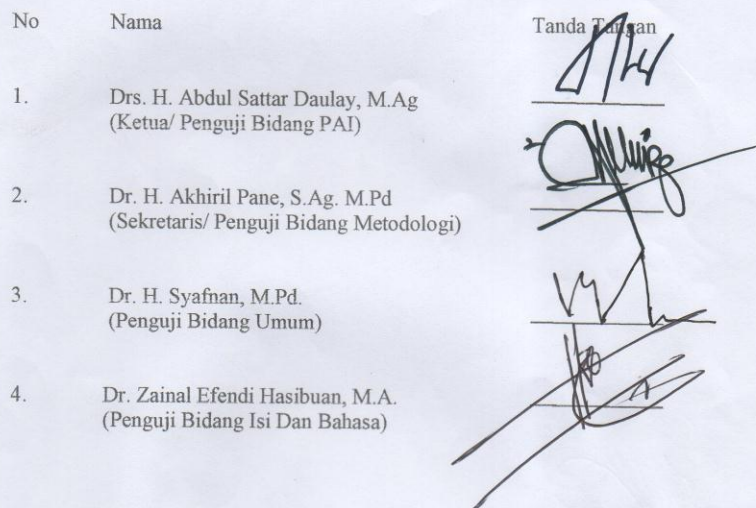 No Nama Tanda Tangan
1. Drs. H. Abdul Sattar Daulay, M.Ag
(Ketua/ Penguji Bidang PAI)
2. Dr. H. Akhiril Pane, S.Ag. M.Pd
(Sekretaris/ Penguji Bidang Metodologi)
3. Dr. H. Syafnan, M.Pd.
(Penguji Bidang Umum)
4. Dr. Zainal Efendi Hasibuan, M.A.
(Penguji Bidang Isi Dan Bahasa)